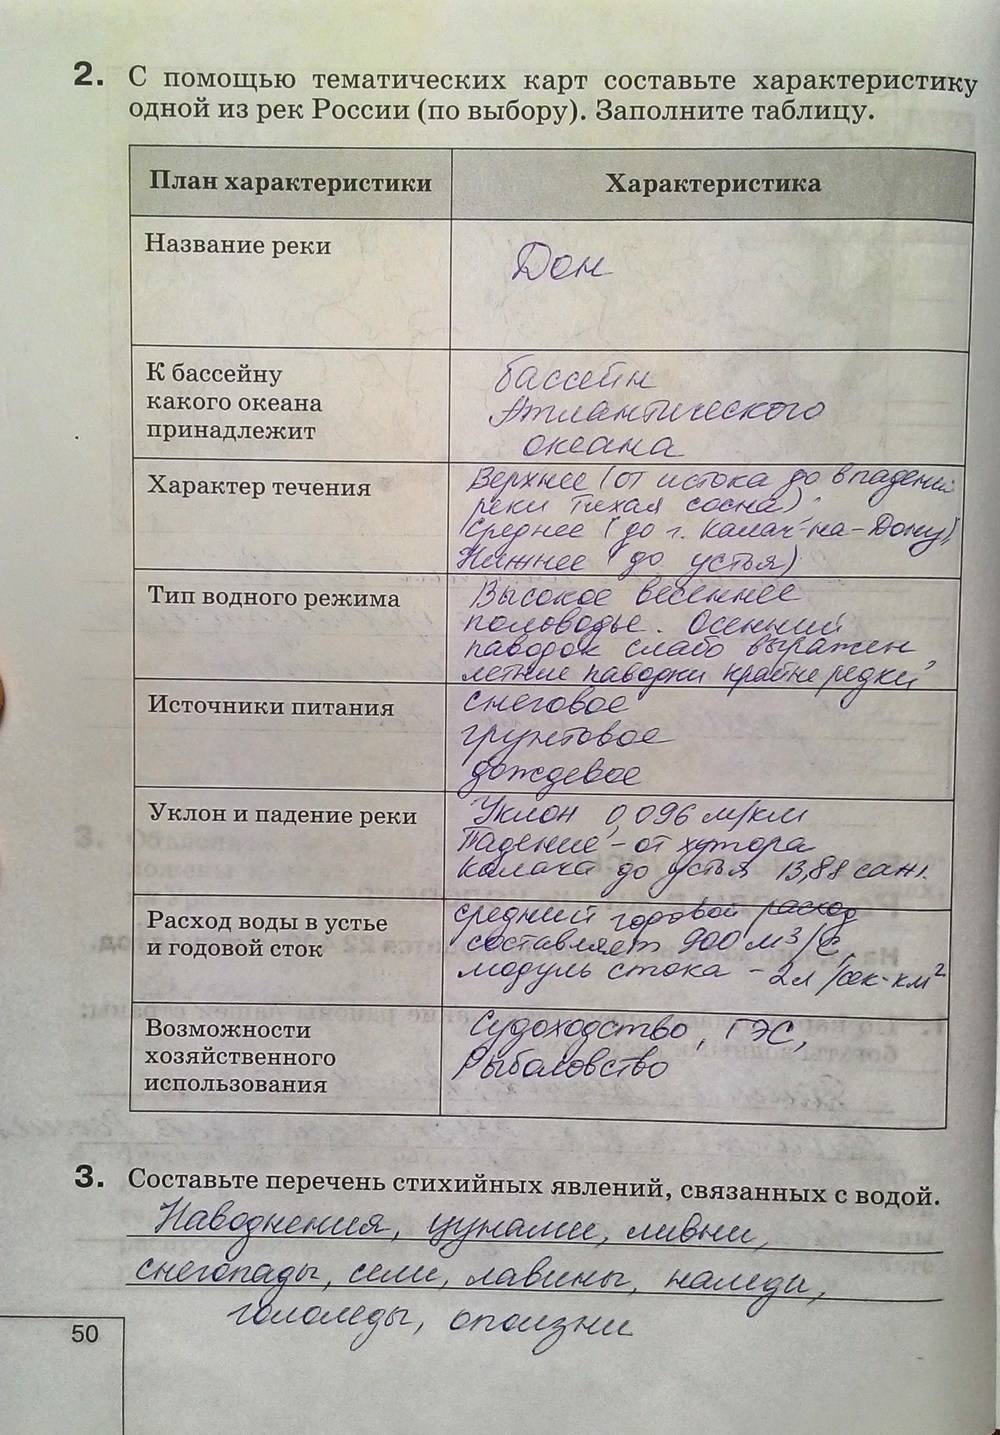 2. С помощью тематических карт составьте характеристику
одной из рек России (по выбору). Заполните таблицу.
План характеристики
Характеристика
Название реки
Дон
К бассейну
какого океана
принадлежит
бассейн
Атлантического
океана
Характер течения
Верхнее (от истока до впадения
реки Тихая сосна)
Среднее (до г. Калач-на-Дону)
Нижнее (до устья)
Тип водного режима
Высокое весеннее
половодье. Осенний
паводок слабо выражен,
летние паводки крайне редки
Источники питания
снеговое
грунтовое
дождевое
Уклон и падение реки
Уклон 0,096 м/км
Падение - от хутора
Калача до устья 13,88 саж.
Расход воды в устье
и годовой сток
средний годовой расход
составляет 900 м3/с,
модуль стока - 2л/сек·км2
Возможности
хозяйственного
использования
Судоходство, ГЭС,
Рыболовство
3. Составьте перечень стихийных явлений, связанных с водой.
Наводнения, цунами, ливни,
снегопады, сели, лавины, наледи,
гололеды, оползни
50